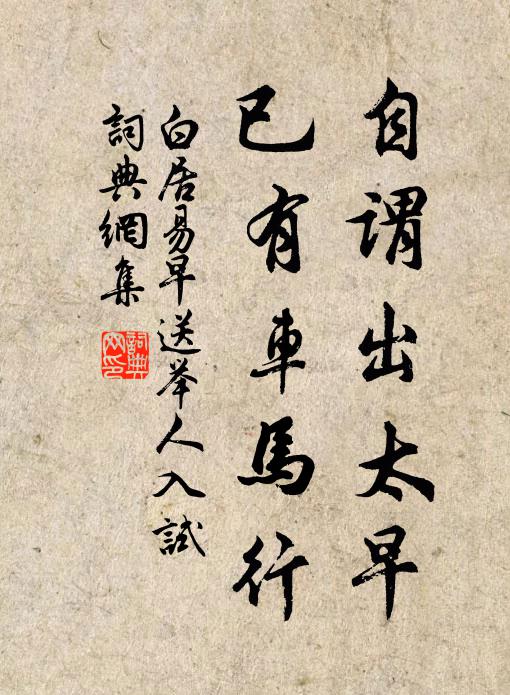 自謂出太早
已有車馬行
白居易早送举人入試
詞典網集
詞典網印